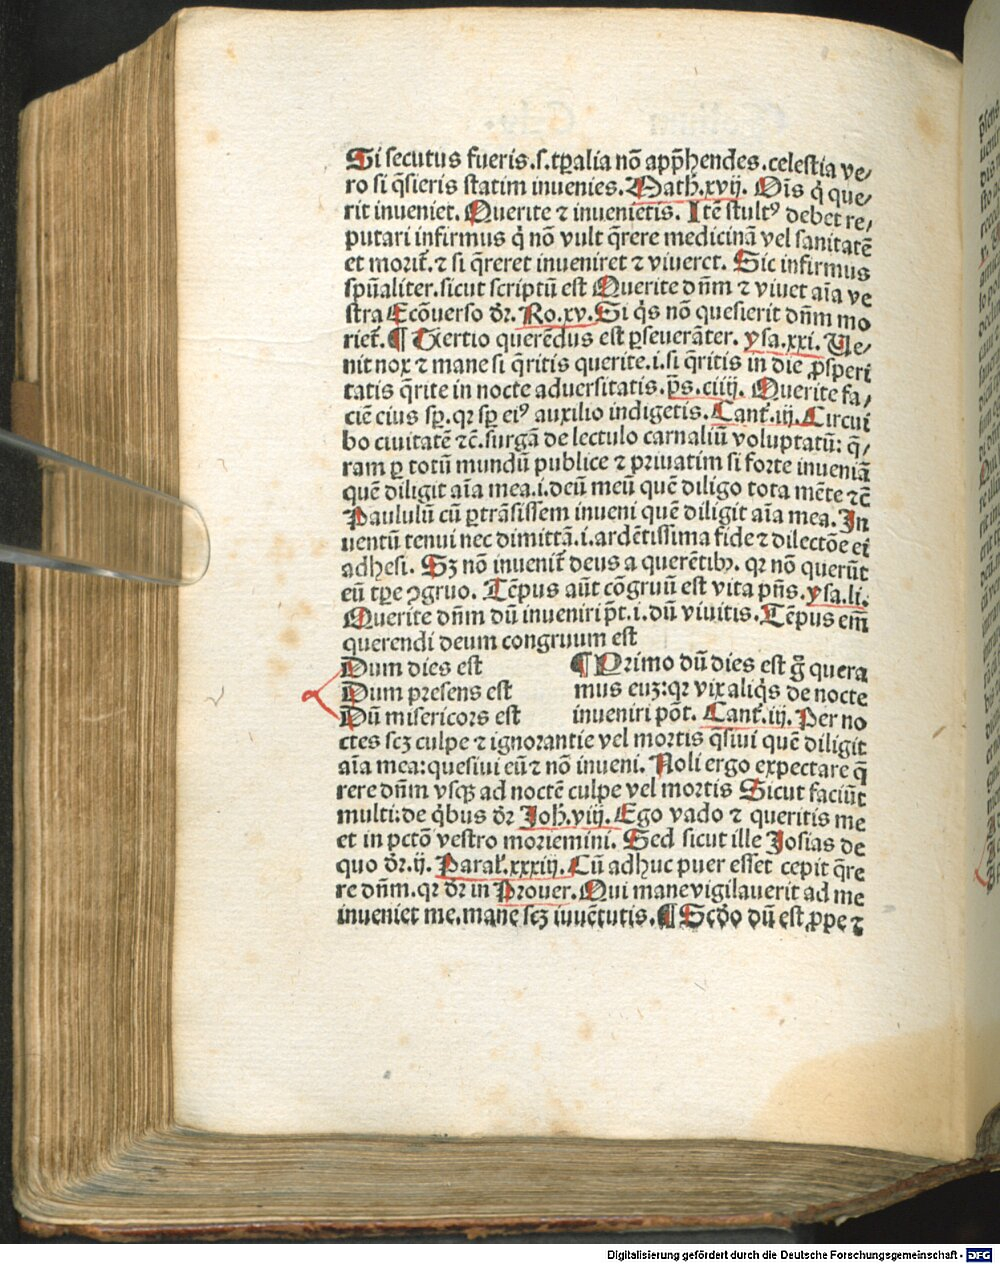 Si secutus fueris.s.tꝑalia nō app̄hendes.celestia ve⸗
ro si q̄sieris statim inuenies. Math̄.xvij. Oīs q̇ que⸗
rit inueniet. Querite ⁊ inuenietis. Itē stultꝰ debet re⸗
putari infirmus q̇ nō vult q̄rere medicinā vel sanitatē
et morit̄.⁊ si q̄reret inueniret ⁊ viueret. Sic infirmus
spūaliter.sicut scriptū est Querite dn̄m ⁊ viuet aīa ve
stra Ecōuerso dr̄. Ro.xv. Si q̇s nō quesierit dn̄m mo
riet̄. ¶ Tertio querēdus est ꝑseuerāter. ysa.xxi. Ue⸗
nit nox ⁊ mane si q̄ritis querite.i.si q̄ritis in die ꝓsperi
tatis q̄rite in nocte aduersitatis.ps̄.ciiij. Querite fa⸗
ciē eius sꝑ. qꝛ sꝑ eiꝰ auxilio indigetis. Cant̄.iij. Circui
bo ciuitatē ⁊c̄.surgā de lectulo carnaliū voluptatū: q̄⸗
ram ꝑ totū mundū publice ⁊ priuatim si forte inueniā
quē diligit aīa mea.i.deū meū quē diligo tota mēte ⁊c̄
Paululū cū ꝑtrāsissem inueni quē diligit aīa mea. In
uentū tenui nec dimittā.i.ardētissima fide ⁊ dilectōe ei
adhesi. Sꝫ nō inuenit̄ deus a querētibꝰ. qꝛ nō querūt
eū tꝑe ꝯgruo. Tēpus aūt cōgruū est vita pn̄s. ysa.li.
Querite dn̄m dū inueniri pōt.i.dū viuitis. Tēpus em̄
querendi deum congruum est
Dum dies est
Dum presens est
Dū misericors est
¶ Primo dū dies est g̊ quera
mus euꝫ: qꝛ vix aliq̇s de nocte
inueniri pōt. Cant̄.iij. Per no
ctes scꝫ culpe ⁊ ignorantie vel mortis q̄siui quē diligit
aīa mea: quesiui eū ⁊ nō inueni. Noli ergo expectare q̄
rere dn̄m vsqꝫ ad noctē culpe vel mortis Sicut faciūt
multi: de q̇bus dr̄ Joh̄.viij. Ego vado ⁊ queritis me
et in pctō vestro moriemini. Sed sicut ille Josias de
quo dr̄.ij. Paral̄.xxxiij. Cū adhuc puer esset cepit q̄re
re dn̄m. qꝛ dr̄ in Prouer. Qui mane vigilauerit ad me
inueniet me.mane scꝫ iuuētutis. ¶ Scd̄o dū est ꝓpe ⁊
Digitalisierung gefördert durch die Deutsche Forschungsgemeinschaft - DFG